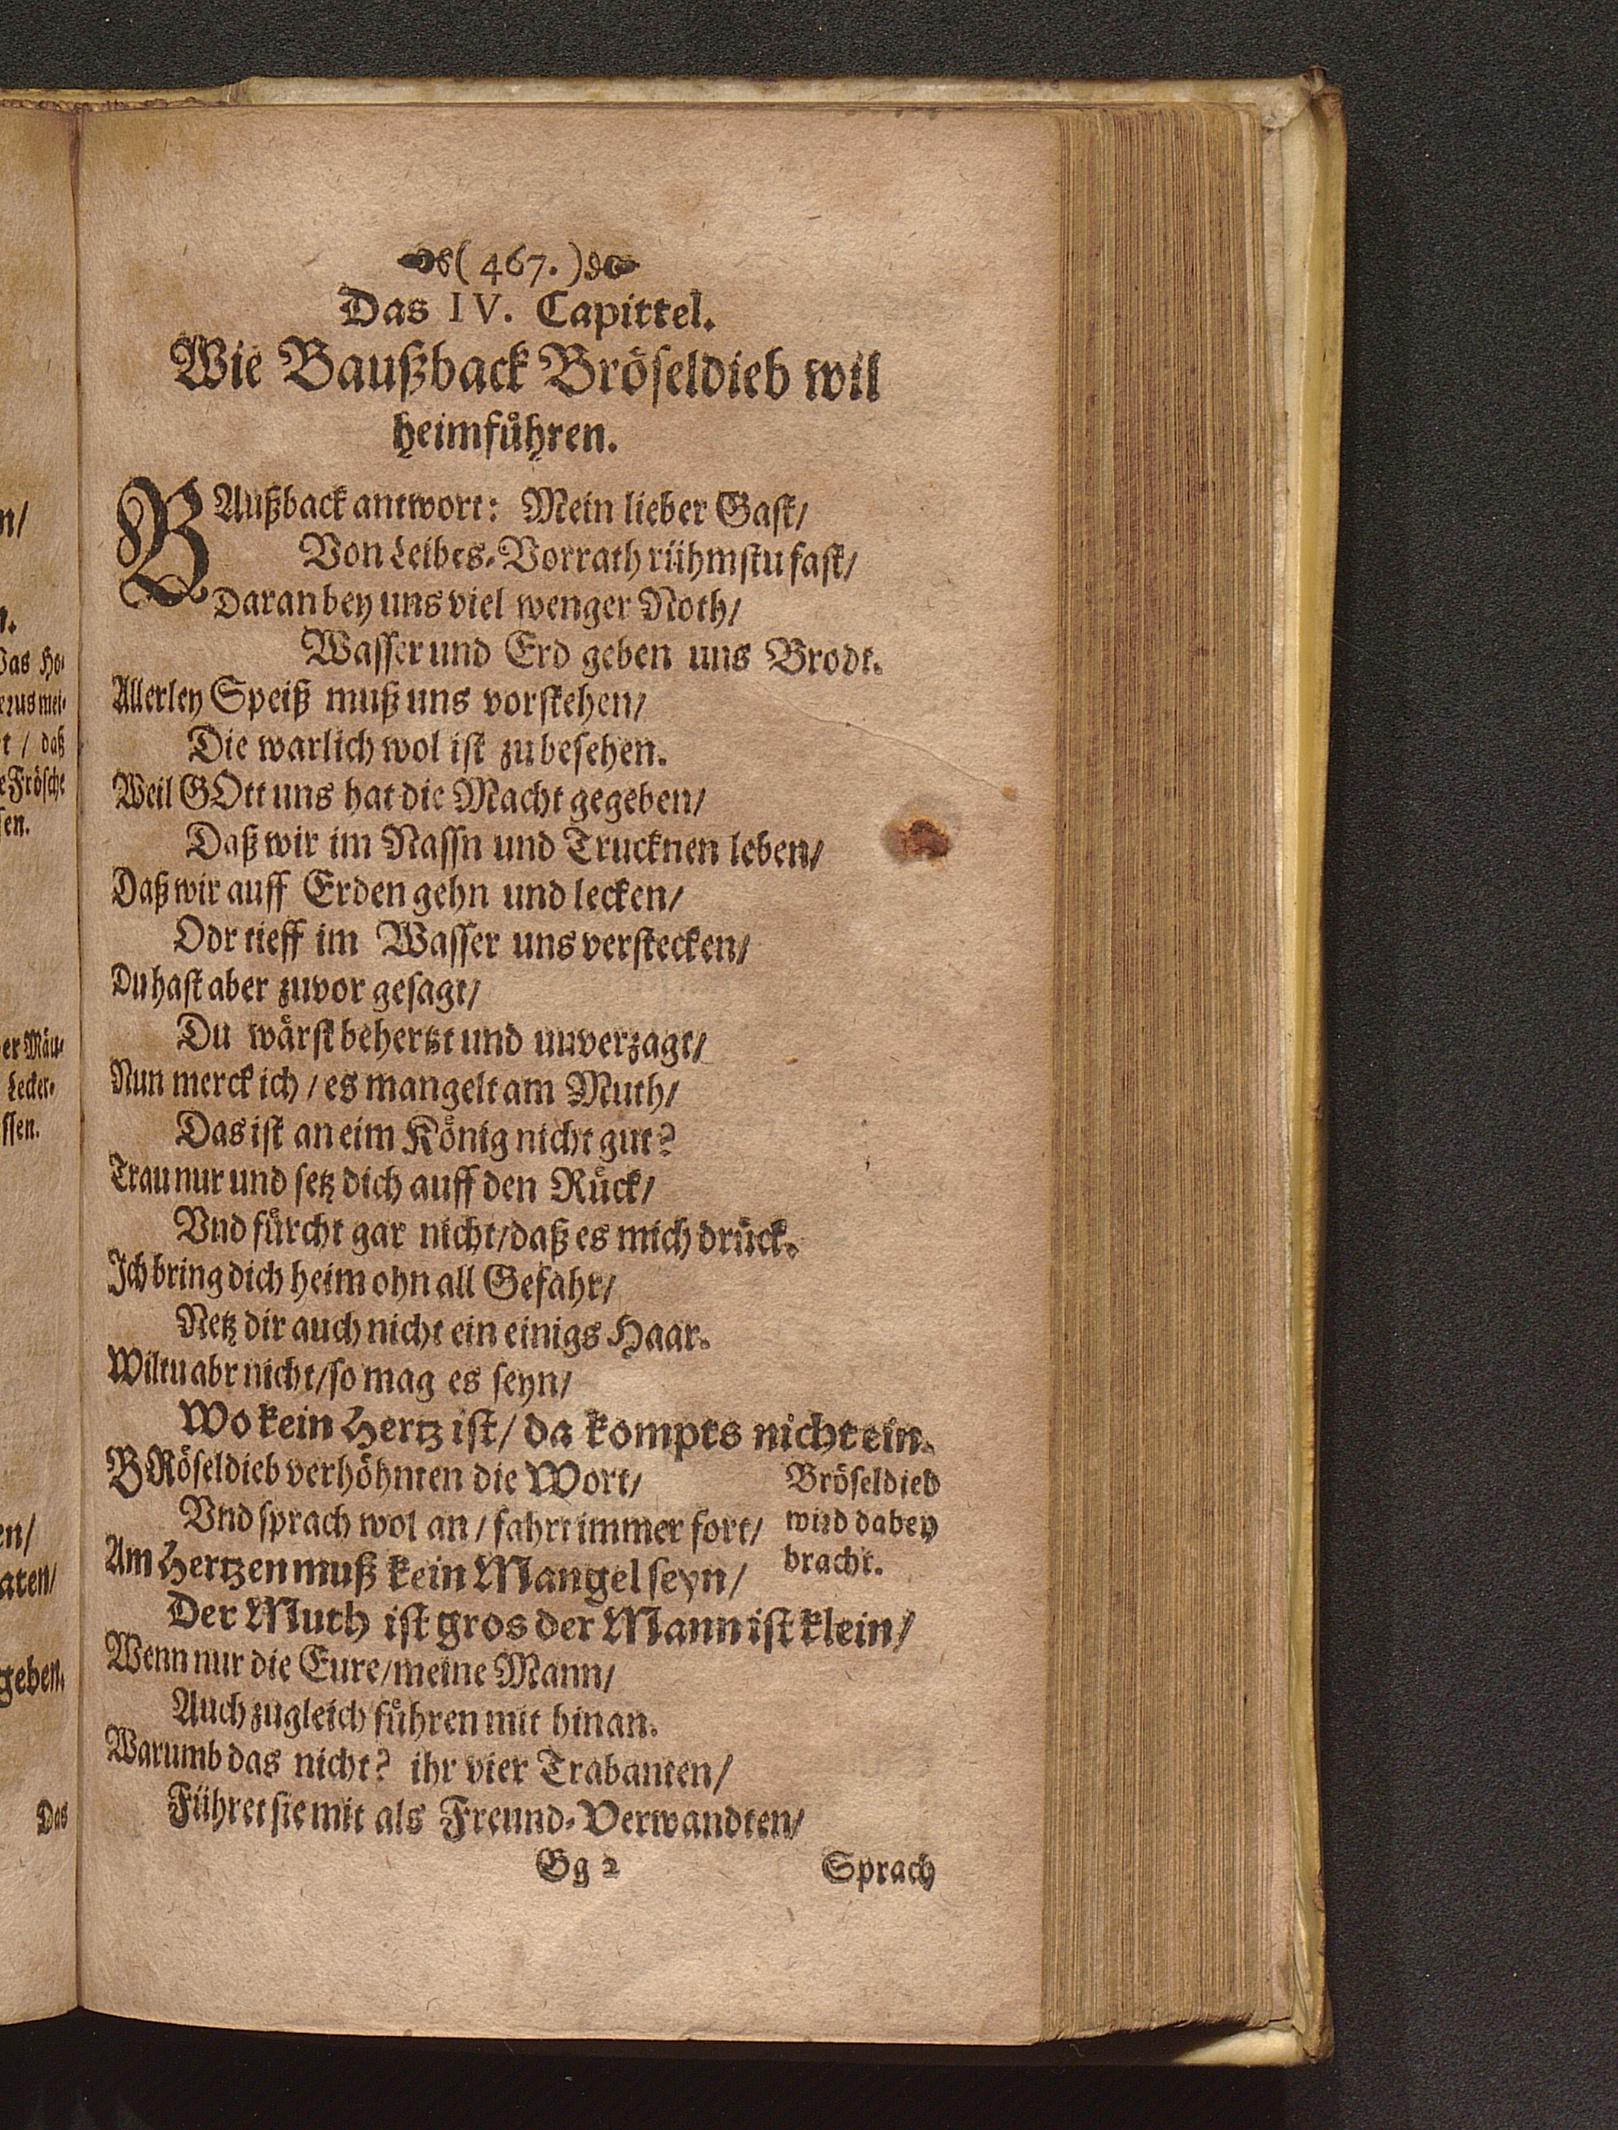 ( 467. )
Das IV. Capittel.
Wie Baußback Bröseldieb wil
heimfuͤhren.
BAußback antwort: Mein lieber Gast/
Von Leibes-Vorrath rühmstu fast/
Daran bey uns viel wenger Noth/
Wasser und Erd geben uns Brodt.
Allerley Speiß muß uns vorstehen/
Die warlich wol ist zu besehen.
Weil GOtt uns hat die Macht gegeben/
Daß wir im Nassn und Trucknen leben/
Daß wir auff Erden gehn und lecken/
Odr tieff im Wasser uns verstecken/
Du hast aber zuvor gesagt/
Du waͤrst behertzt und unverzagt/
Nun merck ich / es mangelt am Muth/
Das ist an eim Koͤnig nicht gut?
Trau nur und setz dich auff den Ruͤck/
Vnd fuͤrcht gar nicht/daß es mich druͤck.
Jch bring dich heim ohn all Gefahr/
Netz dir auch nicht ein einigs Haar.
Wiltu abr nicht/so mag es seyn/
Wo kein Hertz ist/ da kompts nicht ein.
BRöseldieb verhöhnten die Wort/
Vnd sprach wol an / fahrt immer fort/
Am Hertzen muß kein Mangel seyn/
Der Muth ist gros der Mann ist klein/
Wenn nur die Eure/meine Mann/
Auch zugleich fuͤhren mit hinan.
Warumb das nicht? ihr vier Trabanten/
Führet sie mit als Freund-Verwandten/
Bröseldieb
wird dabey
bracht.
Gg 2
Sprach
n/
n.
Was Ho-
merus mei-
daß
Frösche
sen.
der Mäu-
Lecker-
ssen.
en/
aten/
geben.
Das